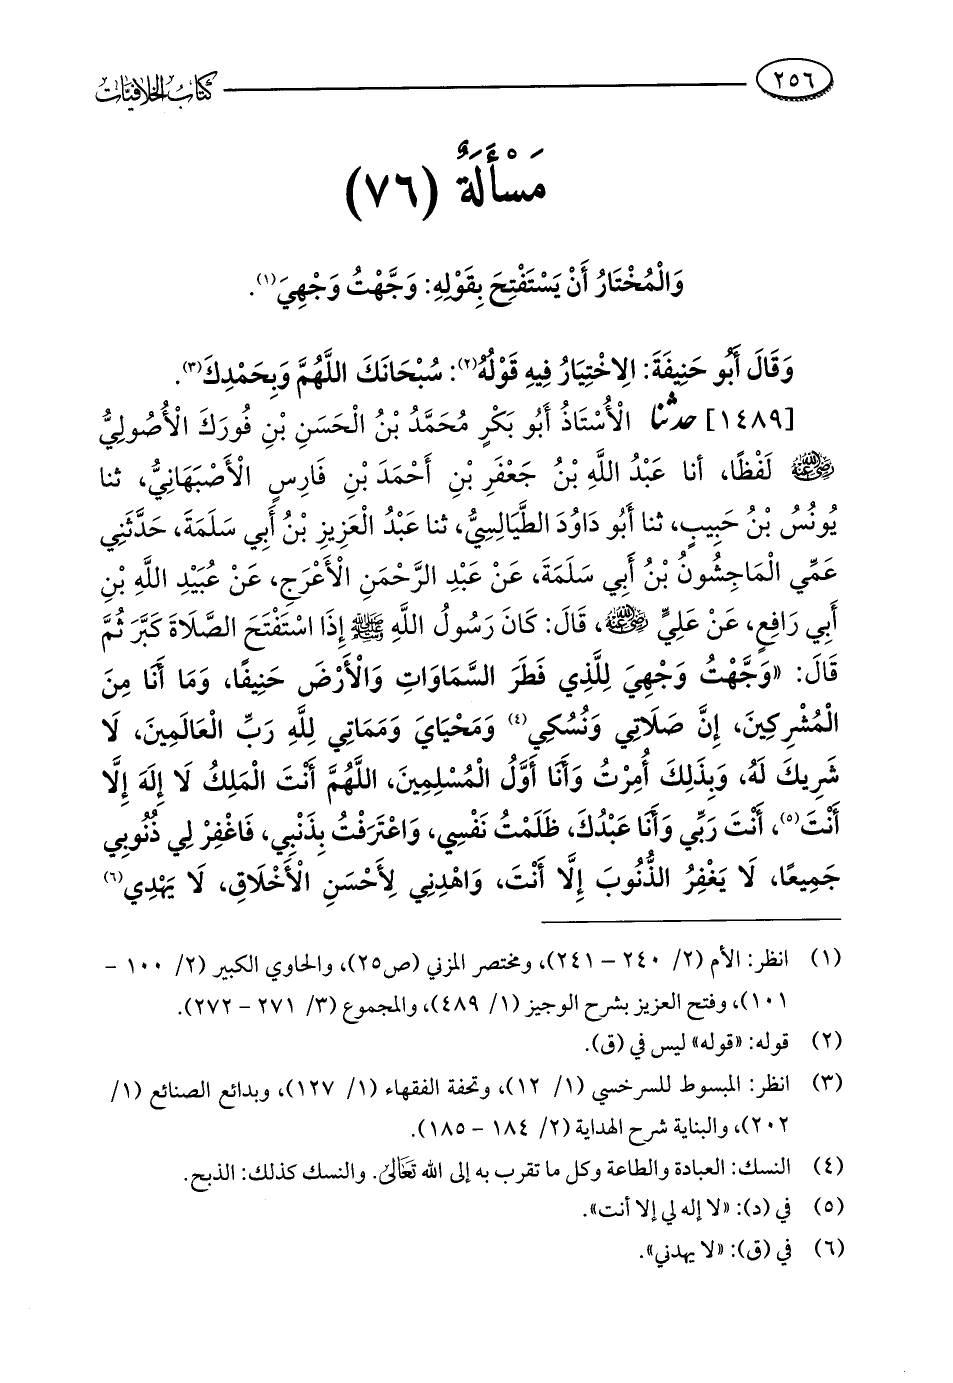 ٢٥٦ كتاب الخلافيات
مَسْأَلَةٌ (٧٦)
وَالْمُخْتَارُ أَنْ يَسْتَفْتِحَ بِقَوْلِهِ: وَجَّهْتُ وَجْهِيَ(١).
وَقَالَ أَبُو حَنِيفَةَ: الِاخْتِيَارُ فِيهِ قَوْلُهُ(٢): سُبْحَانَكَ اللَّهُمَّ وَبِحَمْدِكَ(٣).
[١٤٨٩] حدثنا الْأُسْتَاذُ أَبُو بَكْرٍ مُحَمَّدُ بْنُ الْحَسَنِ بْنِ فُورَكَ الْأُصُولِيُّ
رضي الله عنه لَفْظًا، أنا عَبْدُ اللَّهِ بْنُ جَعْفَرِ بْنِ أَحْمَدَ بْنِ فَارِسٍ الْأَصْبَهَانِيُّ، ثنا
يُونُسُ بْنُ حَبِيبٍ، ثنا أَبُو دَاوُدَ الطَّيَالِسِيُّ، ثنا عَبْدُ الْعَزِيزِ بْنُ أَبِي سَلَمَةَ، حَدَّثَنِي
عَمِّي الْمَاجِشُونُ بْنُ أَبِي سَلَمَةَ، عَنْ عَبْدِ الرَّحْمَنِ الْأَعْرَجِ، عَنْ عُبَيْدِ اللَّهِ بْنِ
أَبِي رَافِعٍ، عَنْ عَلِيٍّ رضي الله عنه، قَالَ: كَانَ رَسُولُ اللَّهِ ﷺ إِذَا اسْتَفْتَحَ الصَّلَاةَ كَبَّرَ ثُمَّ
قَالَ: «وَجَّهْتُ وَجْهِيَ لِلَّذِي فَطَرَ السَّمَاوَاتِ وَالْأَرْضَ حَنِيفًا، وَمَا أَنَا مِنَ
الْمُشْرِكِينَ، إِنَّ صَلَاتِي وَنُسُكِي(٤) وَمَحْيَايَ وَمَمَاتِي لِلَّهِ رَبِّ الْعَالَمِينَ، لَا
شَرِيكَ لَهُ، وَبِذَلِكَ أُمِرْتُ وَأَنَا أَوَّلُ الْمُسْلِمِينَ، اللَّهُمَّ أَنْتَ الْمَلِكُ لَا إِلَهَ إِلَّا
أَنْتَ(٥)، أَنْتَ رَبِّي وَأَنَا عَبْدُكَ، ظَلَمْتُ نَفْسِي، وَاعْتَرَفْتُ بِذَنْبِي، فَاغْفِرْ لِي ذُنُوبِي
جَمِيعًا، لَا يَغْفِرُ الذُّنُوبَ إِلَّا أَنْتَ، وَاهْدِنِي لِأَحْسَنِ الْأَخْلَاقِ، لَا يَهْدِي(٦)
(١) انظر: الأم (٢/ ٢٤٠ – ٢٤١)، ومختصر المزني (ص٢٥)، والحاوي الكبير (٢/ ١٠٠ –
١٠١)، وفتح العزيز بشرح الوجيز (١/ ٤٨٩)، والمجموع (٣/ ٢٧١ – ٢٧٢).
(٢) قوله: «قوله» ليس في (ق).
(٣) انظر: المبسوط للسرخسي (١/ ١٢)، وتحفة الفقهاء (١/ ١٢٧)، وبدائع الصنائع (١/
٢٠٢)، والبناية شرح الهداية (٢/ ١٨٤ – ١٨٥).
(٤) النسك: العبادة والطاعة وكل ما تقرب به إلى الله تَعَالَى. والنسك كذلك: الذبح.
(٥) في (د): «لا إله لي إلا أنت».
(٦) في (ق): «لا يهدني».